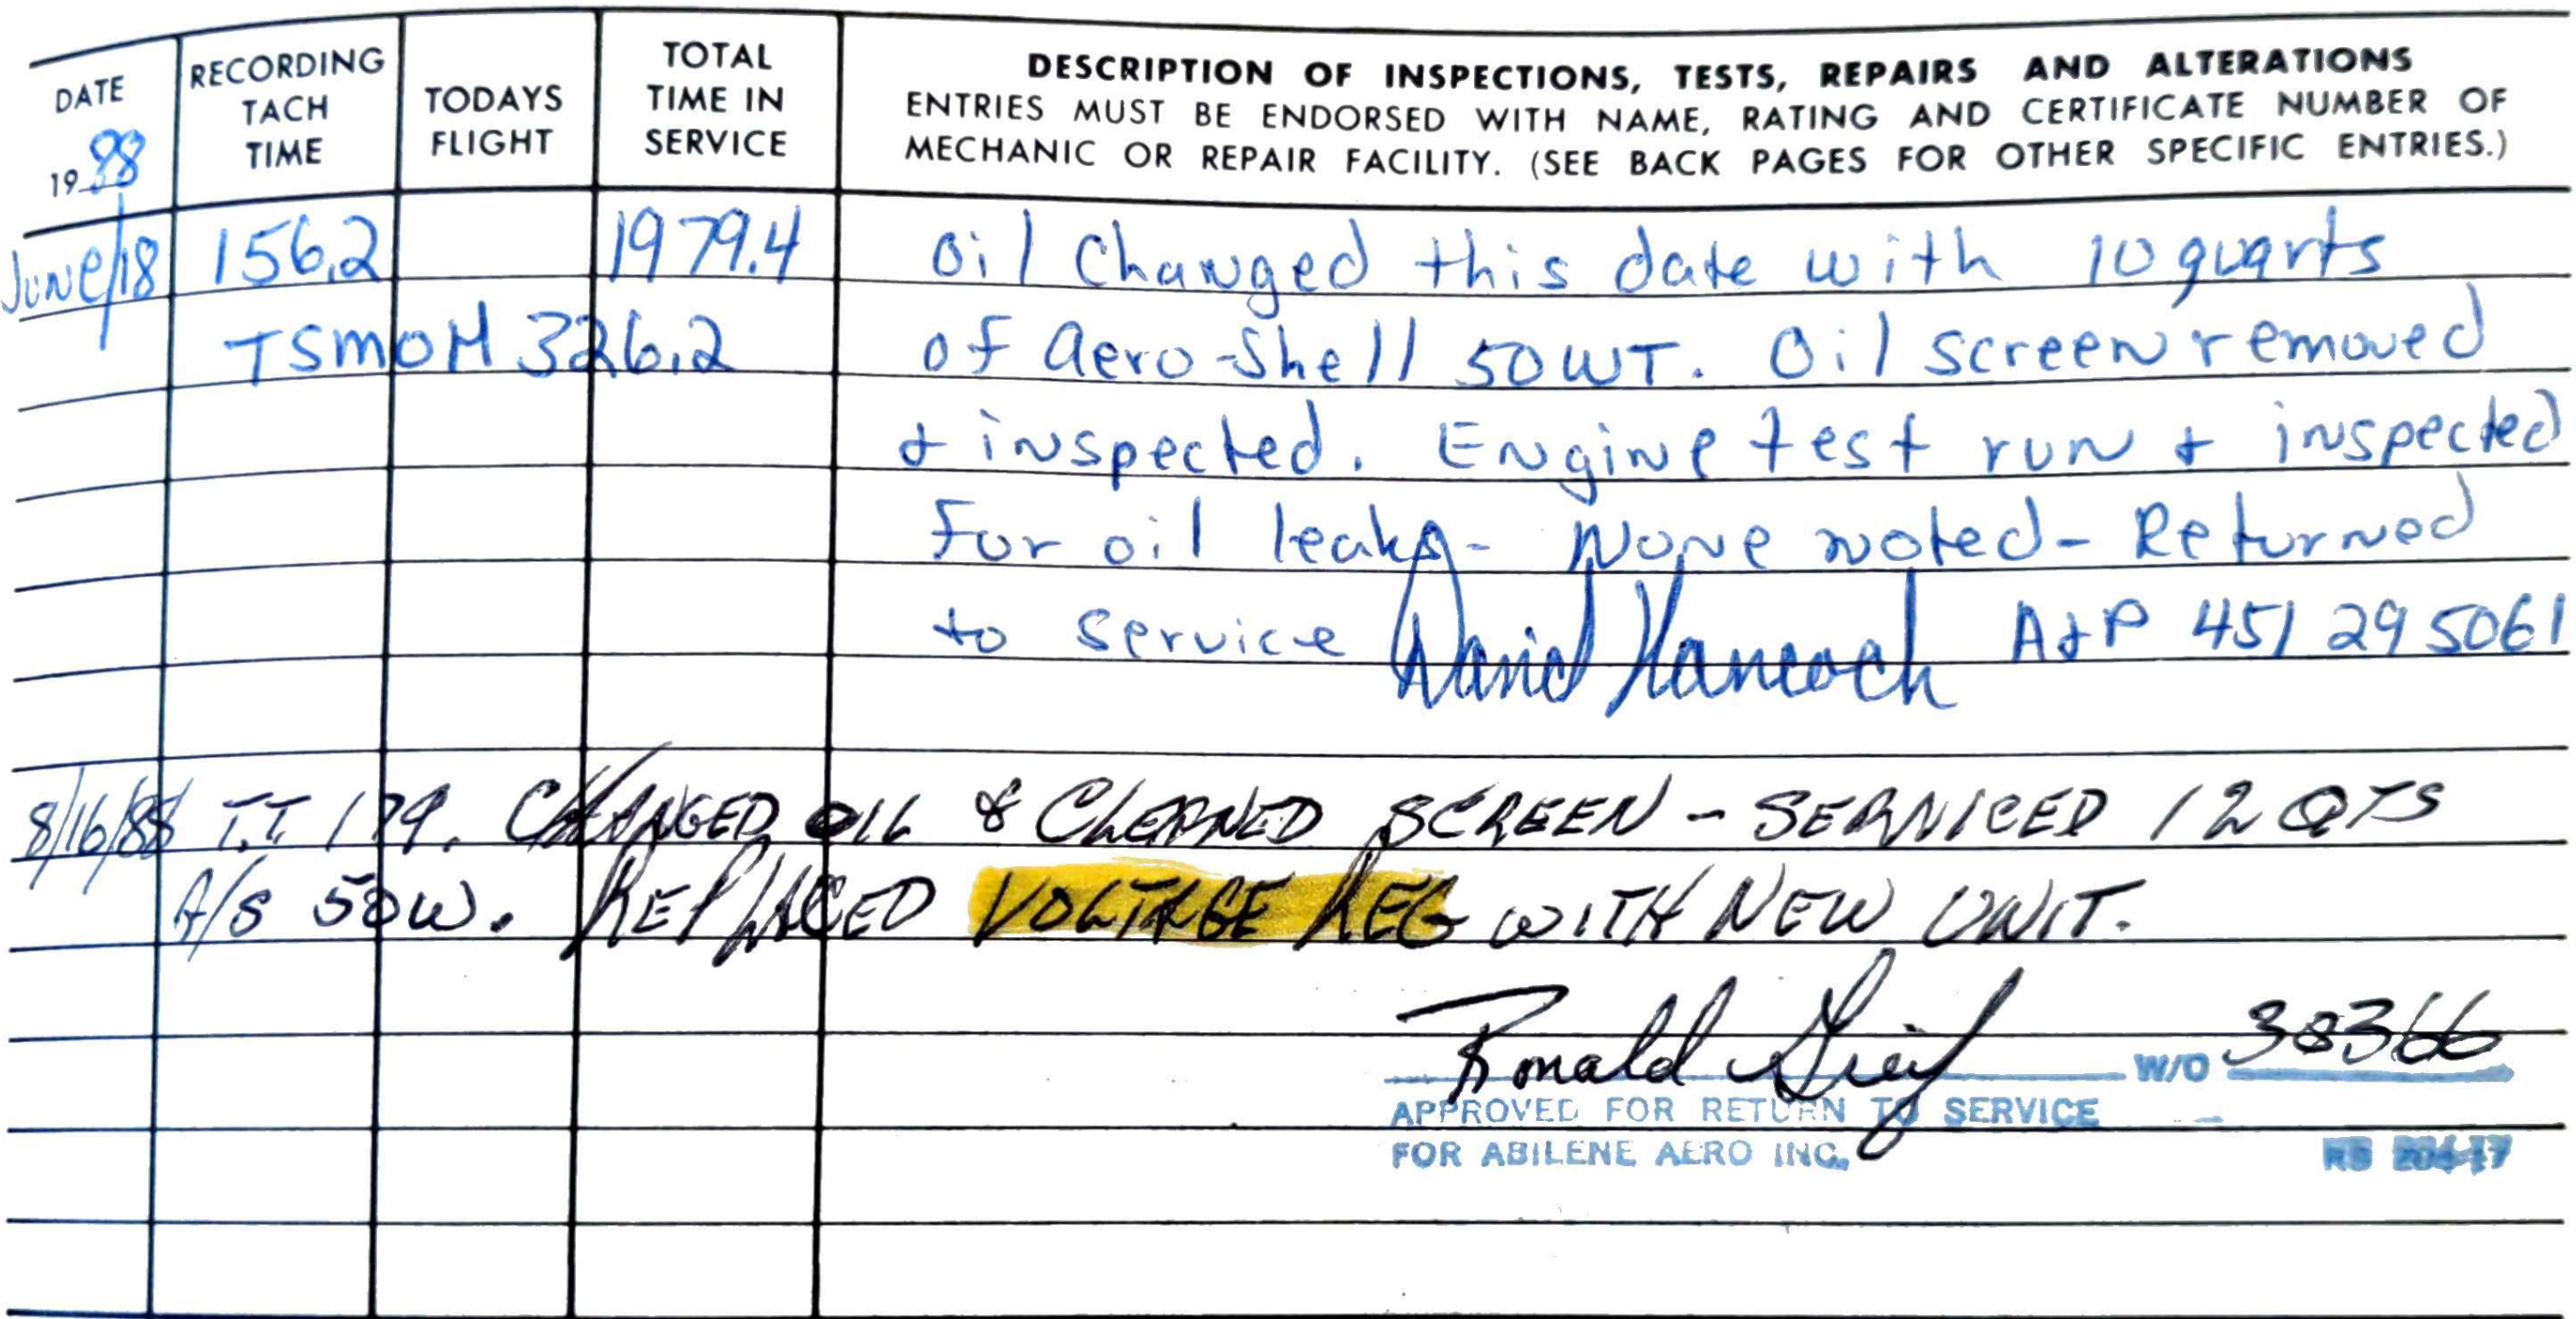 DATE
19 88
RECORDING
TACH
TIME
TODAYS
FLIGHT
TOTAL
TIME IN
SERVICE
DESCRIPTION OF INSPECTIONS, TESTS, REPAIRS AND ALTERATIONS
ENTRIES MUST BE ENDORSED WITH NAME, RATING AND CERTIFICATE NUMBER OF
MECHANIC OR REPAIR FACILITY. (SEE BACK PAGES FOR OTHER SPECIFIC ENTRIES.)
June/18 156.2 1979.4 Oil Changed this date with 10 quarts
TSMOH 326.2 of Aero-Shell 50WT. Oil screen removed
& inspected. Engine test run & inspected
For oil leaks - None noted - Returned
to service David Hancock A&P 451295061
8/16/88 T.T. 179. CHANGED OIL & CLEANED SCREEN - SERVICED 12 QTS
A/S 50W. REPLACED VOLTAGE REG WITH NEW UNIT.
Ronald W/O 38366
APPROVED FOR RETURN TO SERVICE
FOR ABILENE AERO INC. RS